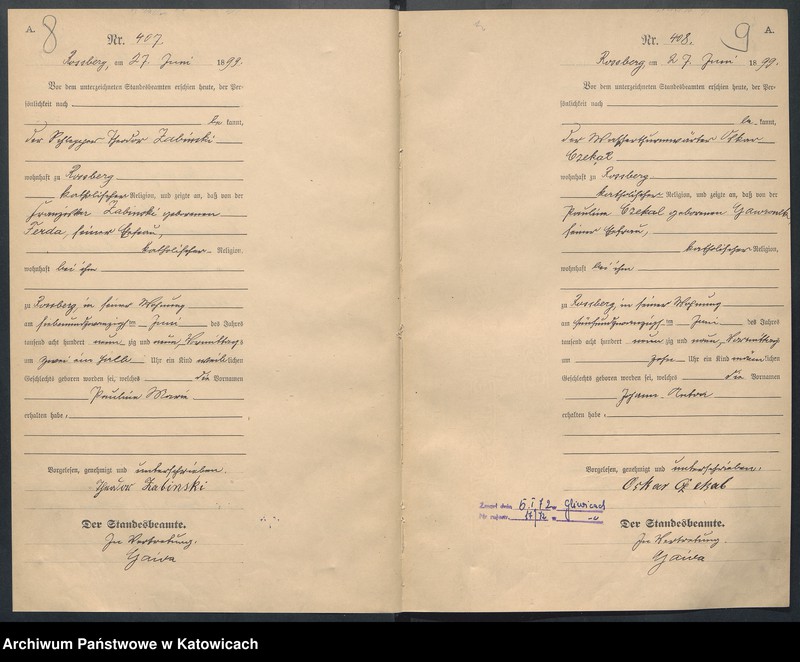 A.
8
Nr. 407.
Rossberg, am 27. Juni 1899.
Vor dem unterzeichneten Standesbeamten erschien heute, der Per-
sönlichkeit nach
be kannt,
der Schlepper Theodor Zabinski
wohnhaft zu Rossberg
katholischer Religion, und zeigte an, daß von der
Franziska Zabinski geborenen
Ferda, seiner Ehefrau,
katholischer Religion,
wohnhaft bei ihm
zu Rossberg, in seiner Wohnung
am siebenundzwanzigsten Juni des Jahres
tausend acht hundert neun zig und neun Vormittags
um zwei ein halb Uhr ein Kind weiblichen
Geschlechts geboren worden sei, welches die Vornamen
Pauline Marie
erhalten habe.
Vorgelesen, genehmigt und unterschrieben.
Theodor Zabinski
Der Standesbeamte.
In Vertretung.
Gaiva
A.
9
Nr. 408.
Rossberg am 27. Juni 1899.
Vor dem unterzeichneten Standesbeamten erschien heute, der Per-
sönlichkeit nach
be kannt,
der Wasserturmwärter Oskar
Czekal
wohnhaft zu Rossberg
katholischer Religion, und zeigte an, daß von der
Pauline Czekal geborenen
seiner Ehefrau,
katholischer Religion,
wohnhaft bei ihm
zu Rossberg in seiner Wohnung
am fünfundzwanzigsten Juni des Jahres
tausend acht hundert neun zig und neun Vormittags
um zehn Uhr ein Kind männlichen
Geschlechts geboren worden sei, welches die Vornamen
Johann
erhalten habe.
Vorgelesen, genehmigt und unterschrieben.
Oskar Czekal
6.I.72 Gliwicach
17/72
Der Standesbeamte.
In Vertretung.
Gaiva
Archiwum Państwowe w Katowicach